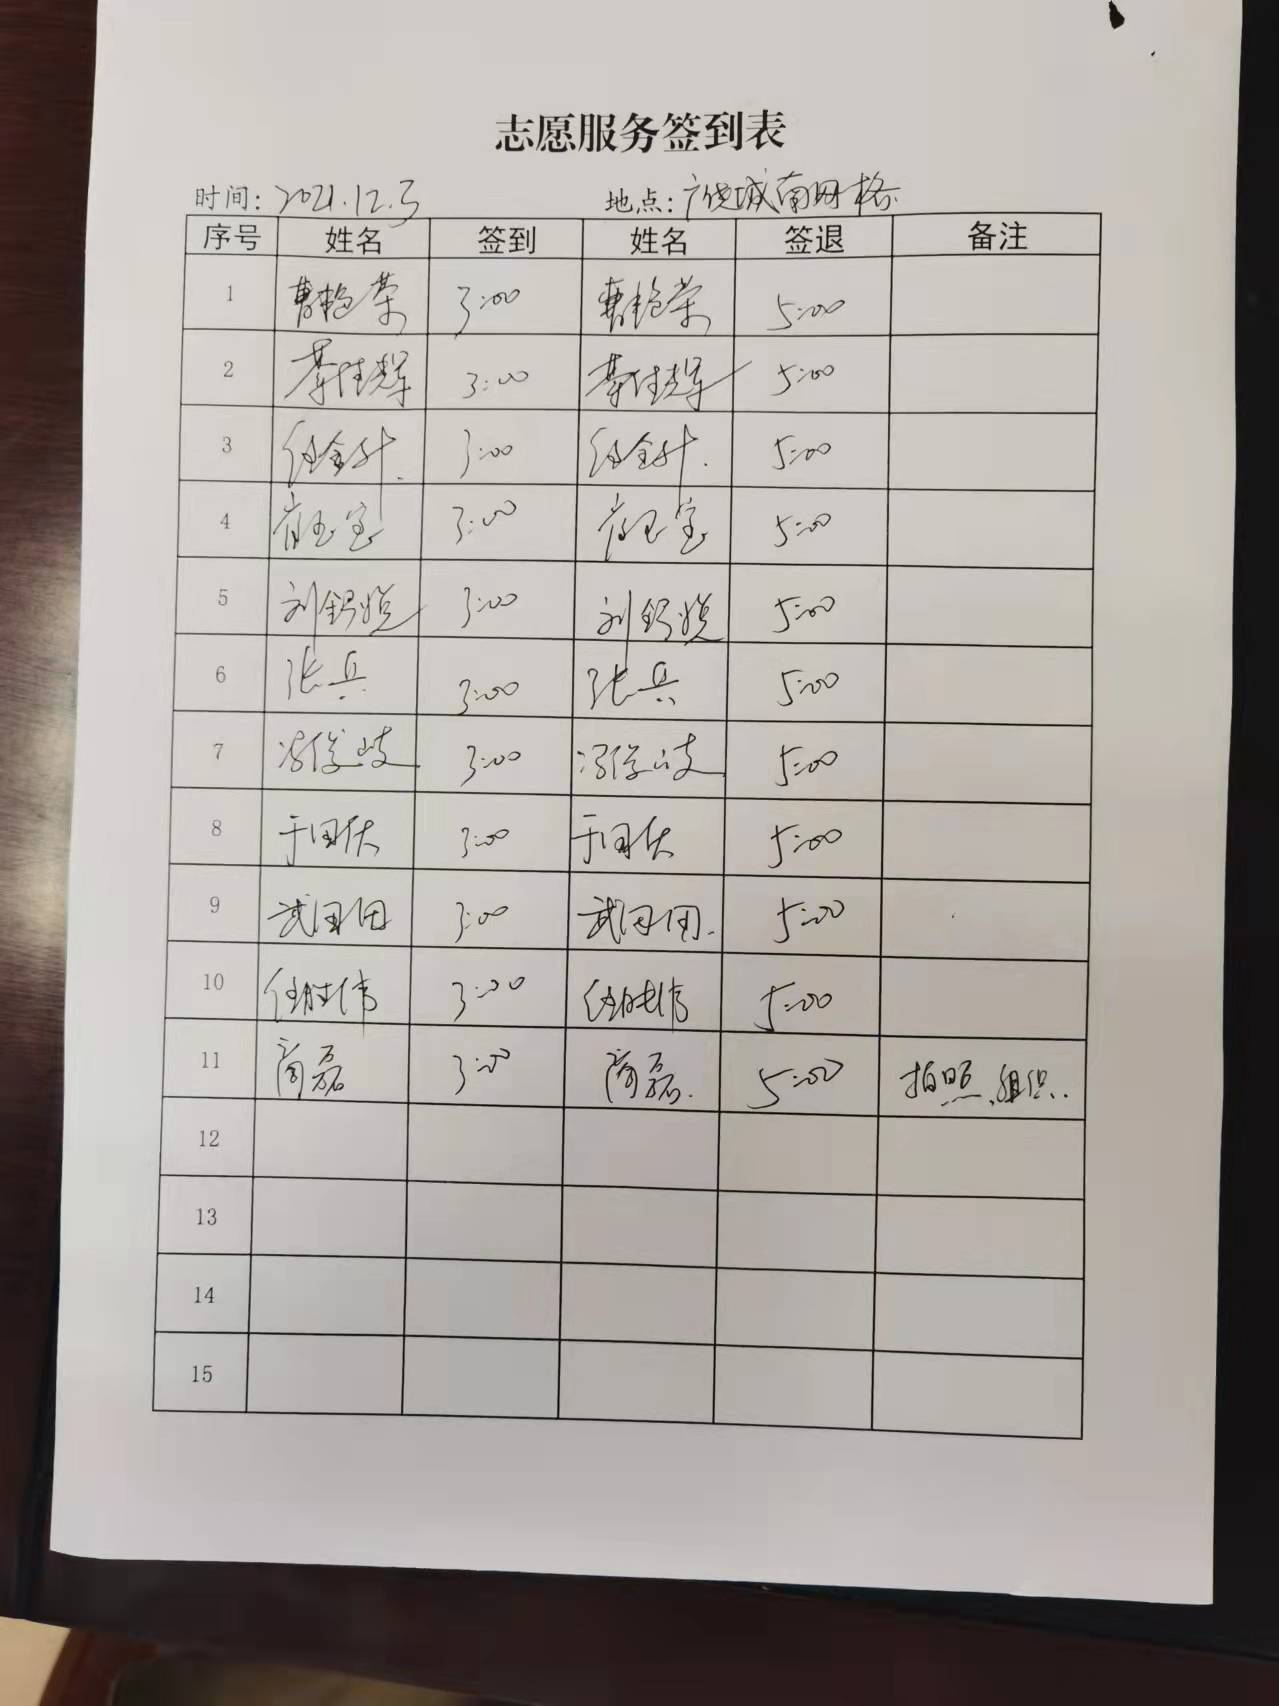 志愿服务签到表
时间: 2021.12.3 地点: 广饶城南网格
序号 姓名 签到 姓名 签退 备注
1 曹艳荣 3:00 曹艳荣 5:00
2 綦佳辉 3:00 綦佳辉 5:00
3 任金升. 3:00 任金升. 5:00
4 崔玉宝 3:00 崔玉宝 5:00
5 刘 3:00 刘 5:00
6 张兵 3:00 张兵 5:00
7 冯俊岐 3:00 冯俊岐 5:00
8 于国庆 3:00 于国庆 5:00
9 武国田 3:00 武国田. 5:00
10 任胜伟 3:00 任胜伟 5:00
11 商磊 3:00 商磊. 5:00 拍照、组织.
12
13
14
15